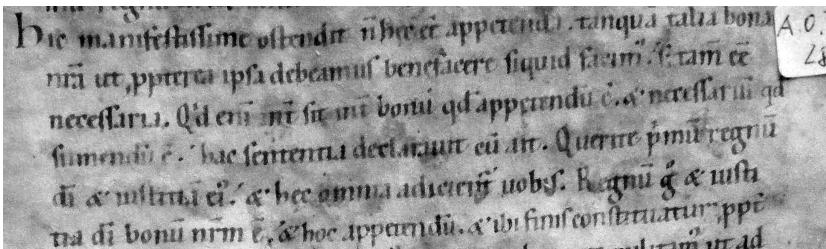 hic manifestissime ostendit n̄ hec eē appetenda. tanquā talia bona
nr̄a ut ꝓpterea ipsa debeamus benefacere siquid facim᷒. s; tam̄ eē
necessaria. Qd̓ eni int̄ sit int̄ bonū qd̓ appetendū ē. & necessariū qd̓
sumendū ē. hac sententia declarauit cū ait. Querite p̓mū regnū
dī & iustitiā ei᷒. & hec omnia adicient᷑ uobis. Regnū g̊ & iusti
tia dī bonū nr̄m ē. & hoc appetendū. & ibi finis constituatur. ꝓpt̄
ut ad
A.O.
28